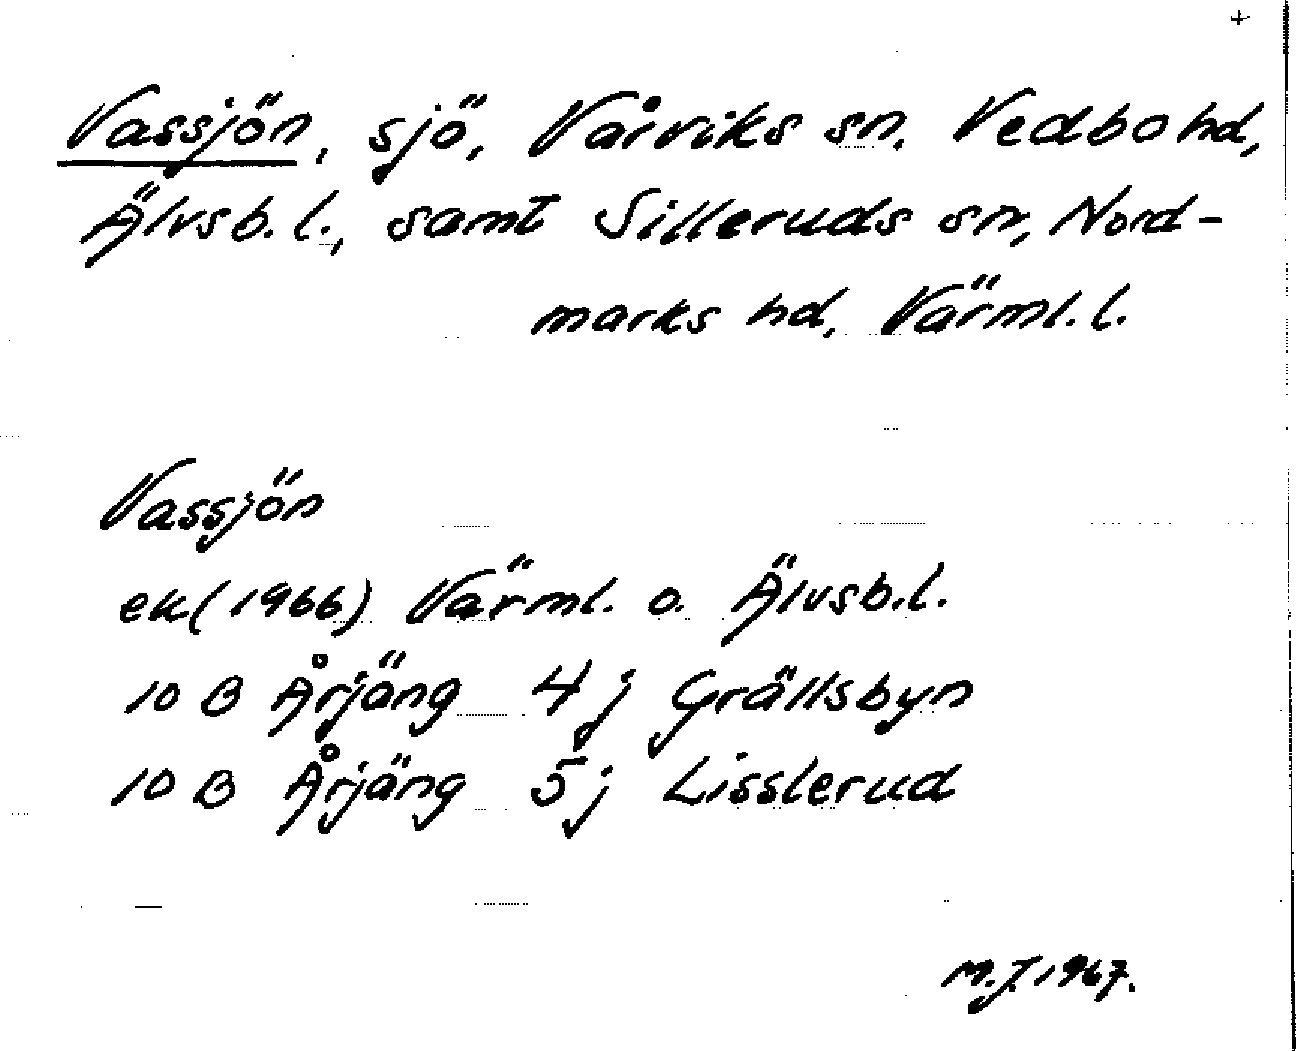 +
Vassjön, sjö, Vårviks sn, Vedbo hd,
Älvsb. l., samt Silleruds sn, Nord-
marks hd, Värml. l.
Vassjön
ek (1966) Värml. o. Älvsb. l.
10 B Årjäng 4 j Grällsbyn
10 B Årjäng 5 j Lisslerud
M.J. 1967.